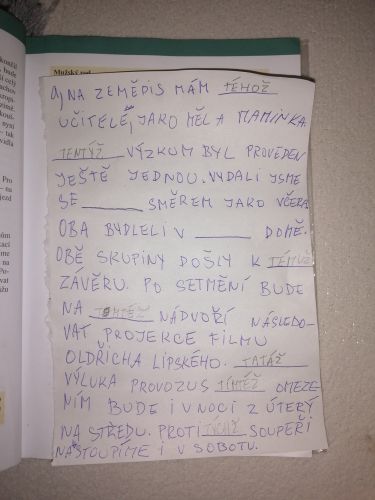 Mužský rod
a) NA ZEMĚPIS MÁM TÉHOŽ
UČITELE, JAKO MĚLA MAMINKA.
TENTÝŽ VÝZKUM BYL PROVEDEN
JEŠTĚ JEDNOU. VYDALI JSME
SE ______ SMĚREM JAKO VČERA
OBA BYDLELI V ______ DOMĚ.
OBĚ SKUPINY DOŠLY K TÉMUŽ
ZÁVĚRU. PO SETMĚNÍ BUDE
NA TOMTÉŽ NÁDVOŘÍ NÁSLEDO-
VAT PROJEKCE FILMU
OLDŘICHA LIPSKÉHO. TATÁŽ
VÝLUKA PROVOZUS TÍMTÉŽ OMEZE
NÍM BUDE I V NOCI Z ÚTERÝ
NA STŘEDU. PROTI TÝCHŽ SOUPEŘI
NASTOUPÍME I V SOBOTU.